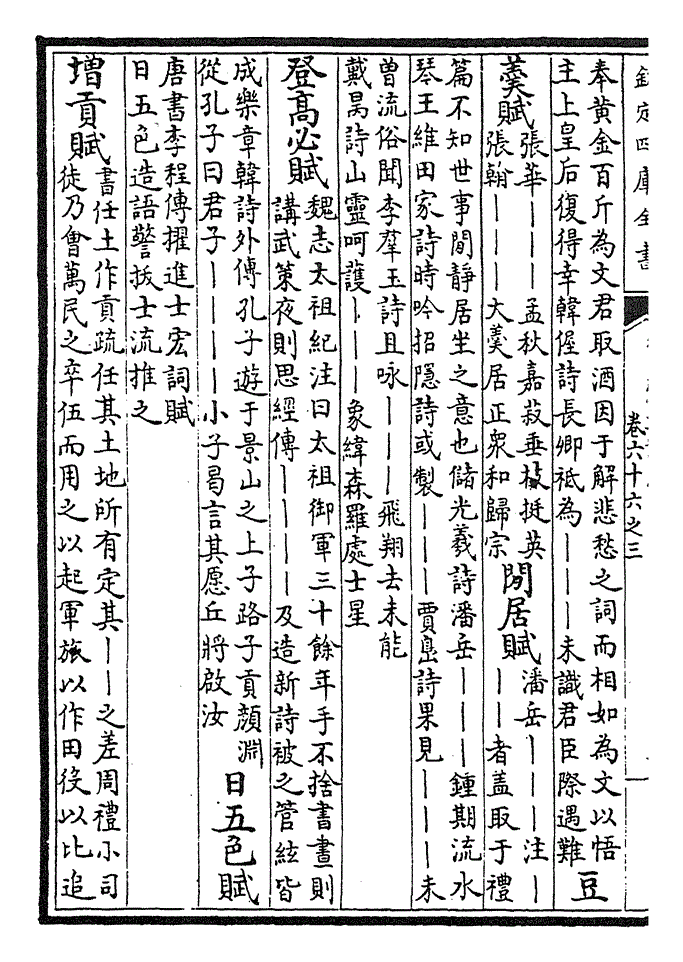 欽定四庫全書
卷六十六之三
奉黄金百斤為文君取酒因于解悲愁之詞而相如為文以悟
主上皇后復得幸韓偓詩長卿祗為丨丨丨未識君臣際遇難
豆
羮賦
張華丨丨丨丨孟秋嘉菽垂枝挺英
張翰丨丨丨大羮居正衆和歸宗
閒居賦
潘岳丨丨丨注丨
丨丨者蓋取于禮
篇不知世事閒靜居坐之意也儲光羲詩潘岳丨丨丨鍾期流水
琴王維田家詩時吟招隱詩或製丨丨丨賈島詩果見丨丨丨未
曽流俗聞李羣玉詩且咏丨丨丨飛翔去未能
戴昺詩山靈呵護丨丨丨象緯森羅處士星
登高必賦
魏志太祖紀注曰太祖御軍三十餘年手不捨書晝則
講武策夜則思經傳丨丨丨丨及造新詩被之管絃皆
成樂章韓詩外傳孔子遊于景山之上子路子貢顔淵
從孔子曰君子丨丨丨丨小子曷言其愿丘將啟汝
日五色賦
唐書李程傳擢進士宏詞賦
日五色造語警拔士流推之
增貢賦
書任土作貢疏任其土地所有定其丨丨之差周禮小司
徒乃㑹萬民之卒伍而用之以起軍旅以作田役以比追